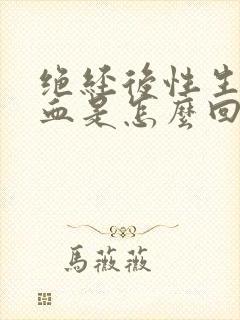 绝经後性生
血是怎麼回
馬薇薇